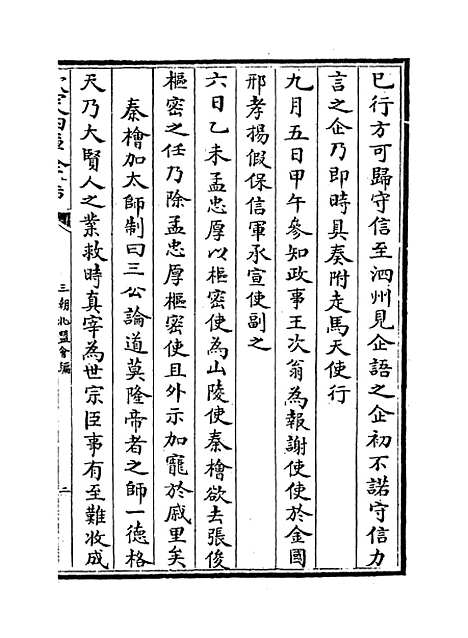 已行方可歸守信至泗州見企語之企初不諾守信力
言之企乃即時具奏附走馬天使行
九月五日甲午參知政事王次翁為報謝使使於金國
邢孝揚假保信軍承宣使副之
六日乙未孟忠厚以樞密使為山陵使秦檜欲去張俊
樞密之任乃除孟忠厚樞密使且外示加寵於戚里矣
秦檜加太師制曰三公論道莫隆帝者之師一德格
天乃大賢人之業救時真宰為世宗臣事有至難收成
三朝北盟會編
二